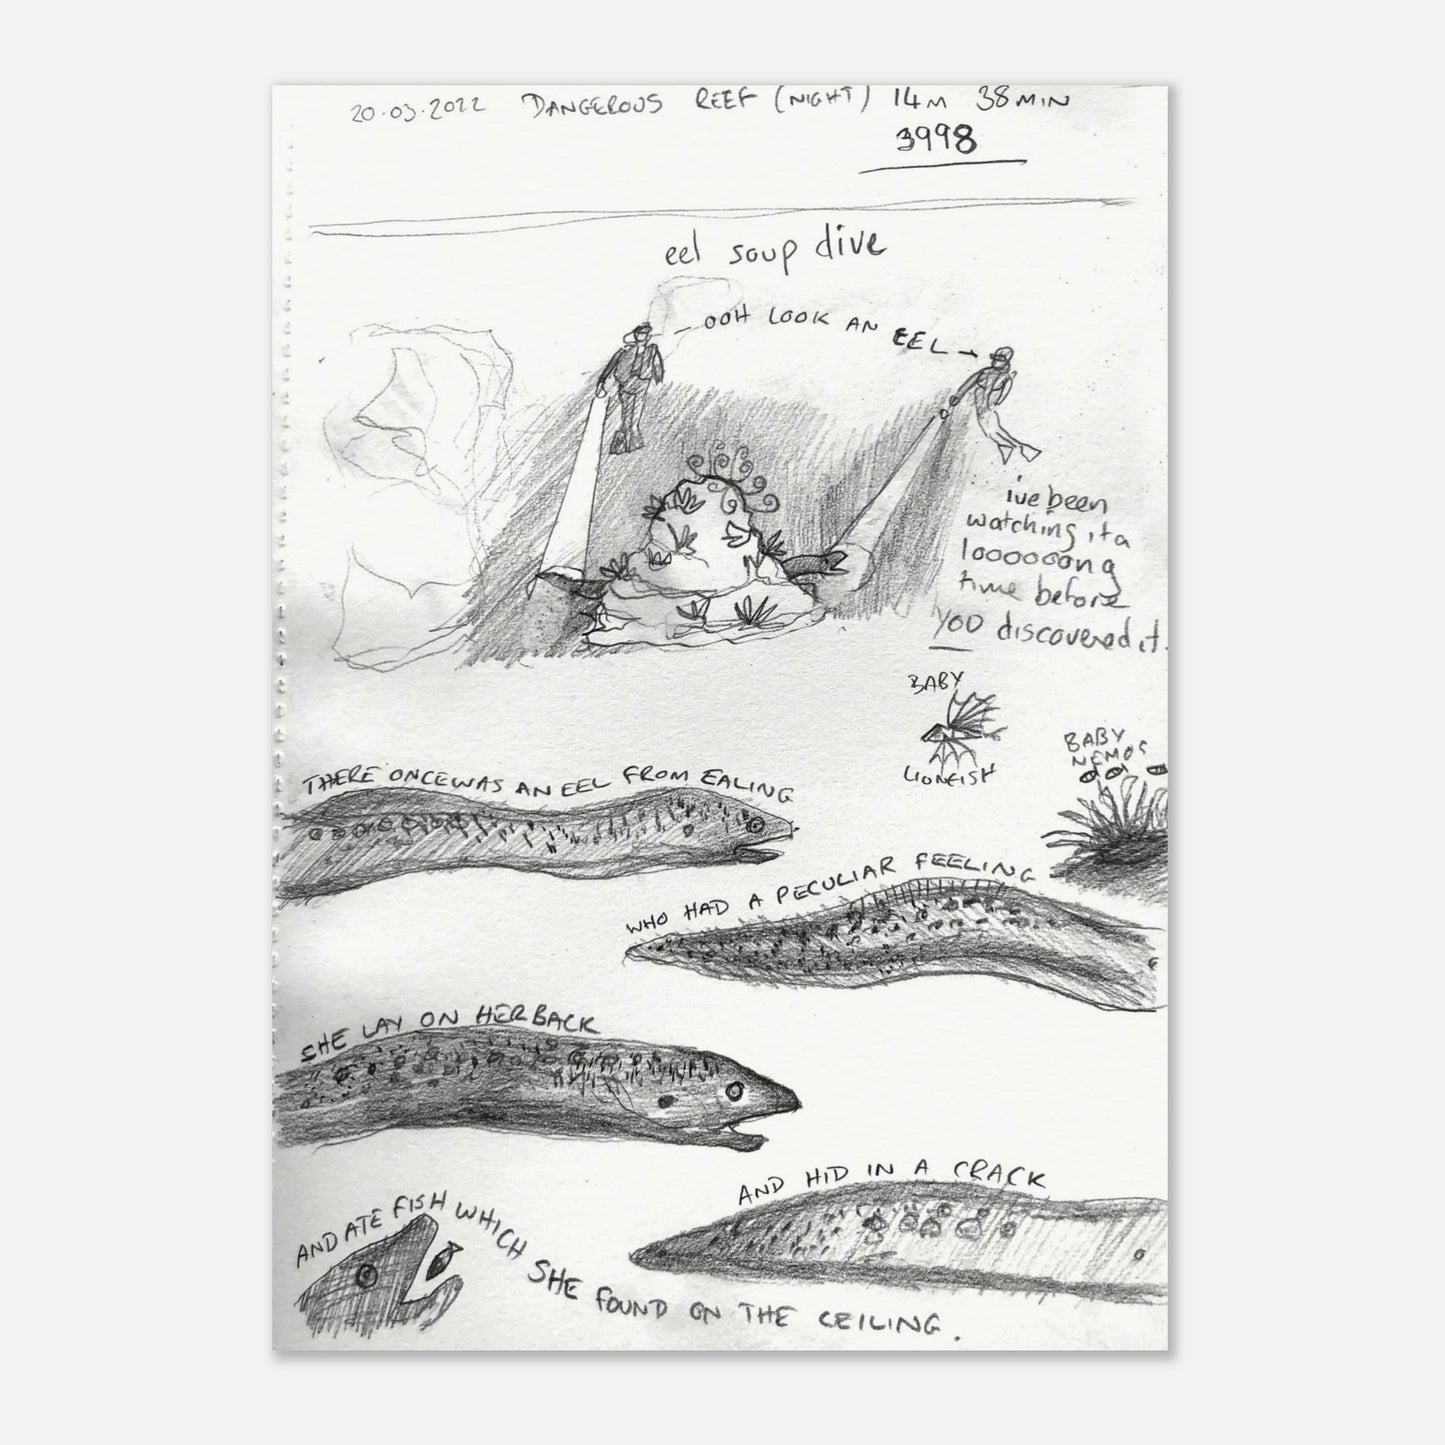 20.03.2022 DANGEROUS REEF (NIGHT) 14M 38MIN
3998
eel soup dive
- OOH LOOK AN EEL -
ive been
watching it a
loooooong
time before
YOU discovered it.
BABY
LIONFISH
BABY
NEMOS
THERE ONCE WAS AN EEL FROM EALING
WHO HAD A PECULIAR FEELING
SHE LAY ON HER BACK
AND HID IN A CRACK
AND ATE FISH WHICH SHE FOUND ON THE CEILING.